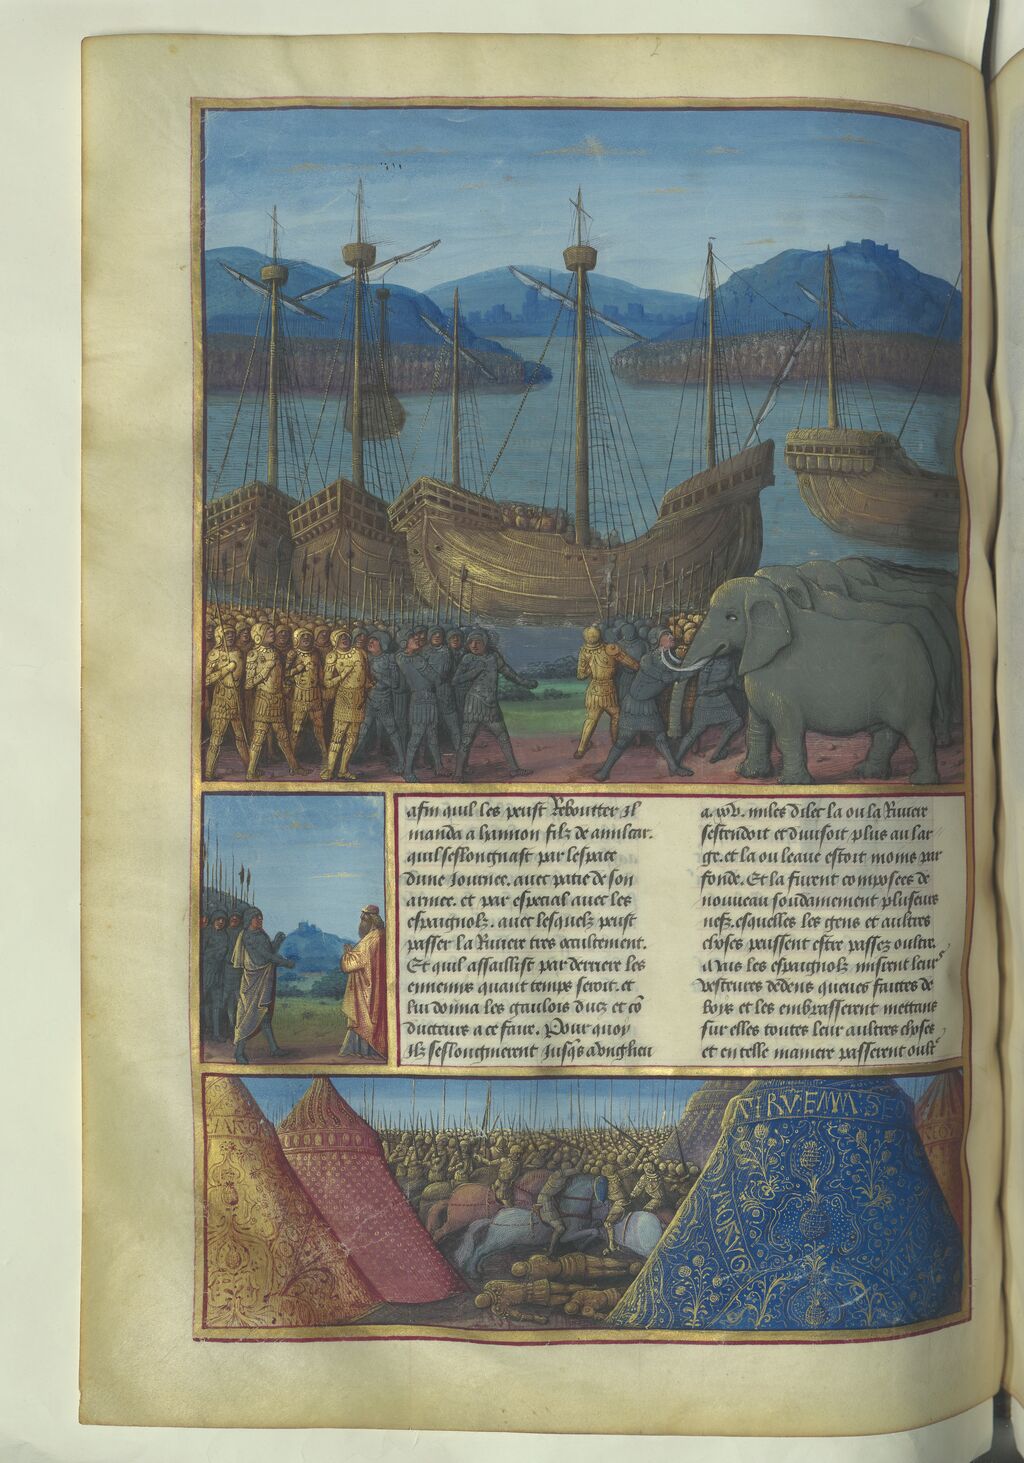 afin quil les peust Reboutter Il
manda a hannon filz de amilcar.
quil seslongnast par lespace
dune Journee. avec patie de son
armee. et par especial avec les
espaignolz. avec lesquelz peust
passer la Riviere tres occultement.
Et quil assaillist par derriere les
ennemis quant temps seroit. et
lui donna les gaulois ducz et cō
ducteurs a ce faire. Pour quoy
Ilz seslongnerent Jusqs a
a. xxv. miles dilec la ou la Riviere
sestendoit et divisoit plus au lar
ge. et la ou leaue estoit moins par
fonde. Et la furent composees de
nouveau soudainement plusieurs
nefz. esquelles les gens et aultres
choses peussent estre passez oultre.
Mais les espaignolz misrent leurs
vestures dedens faictes de
boys et les embrasserent mettans
sur elles toutes leur aultres choses
et en telle maniere passerent oultr